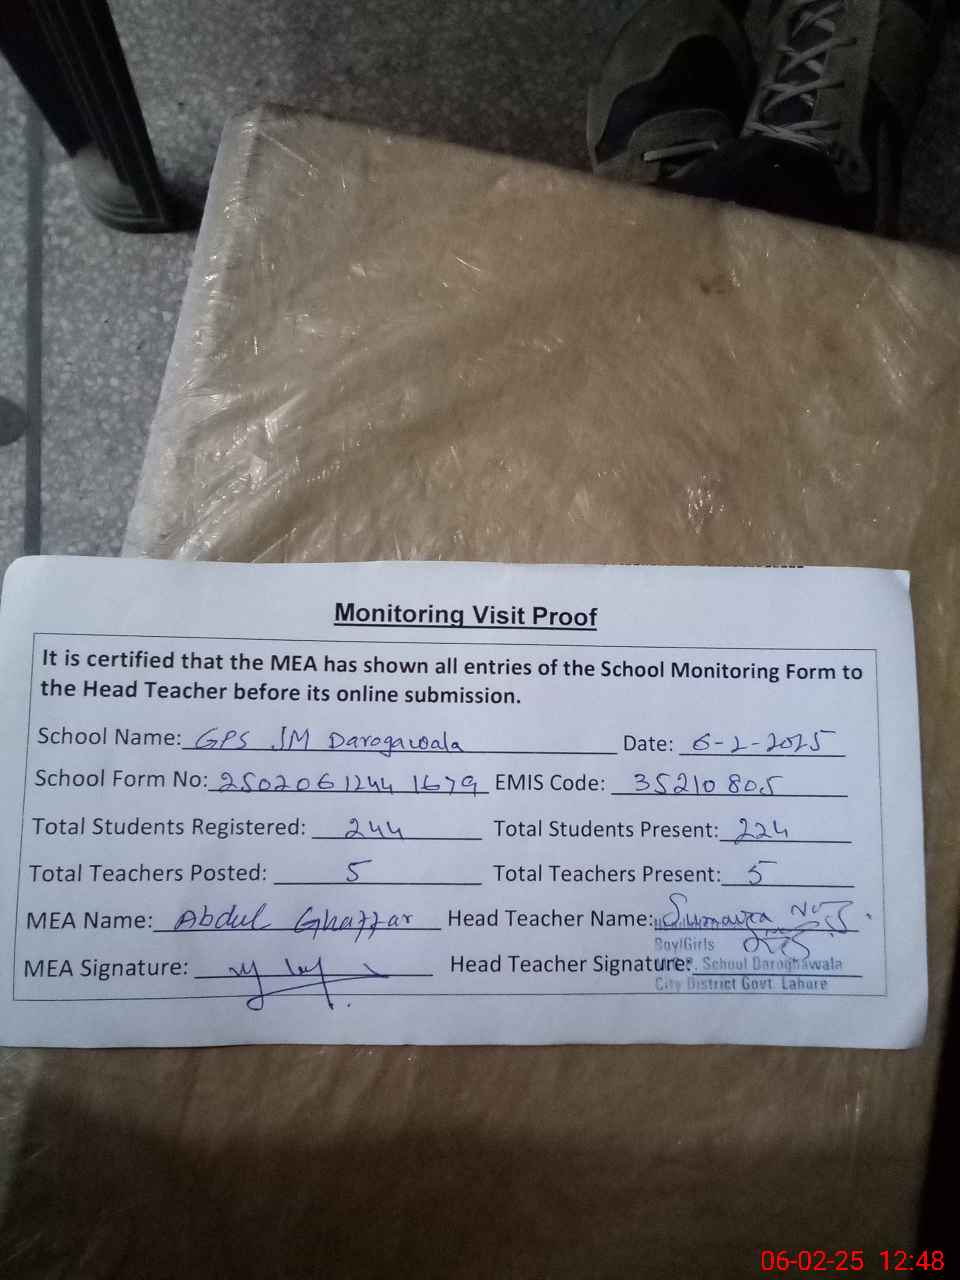 Monitoring Visit Proof
It is certified that the MEA has shown all entries of the School Monitoring Form to
the Head Teacher before its online submission.
School Name: GPS JM Darogawala Date: 6-2-2025
School Form No: 2502061244 1679 EMIS Code: 35210805
Total Students Registered: 244 Total Students Present: 224
Total Teachers Posted: 5 Total Teachers Present: 5
MEA Name: Abdul Ghaffar Head Teacher Name: Sumaira
Boy/Girls
MEA Signature: Head Teacher Signature: School Daroghawala
City District Govt. Lahore
06-02-25 12:48